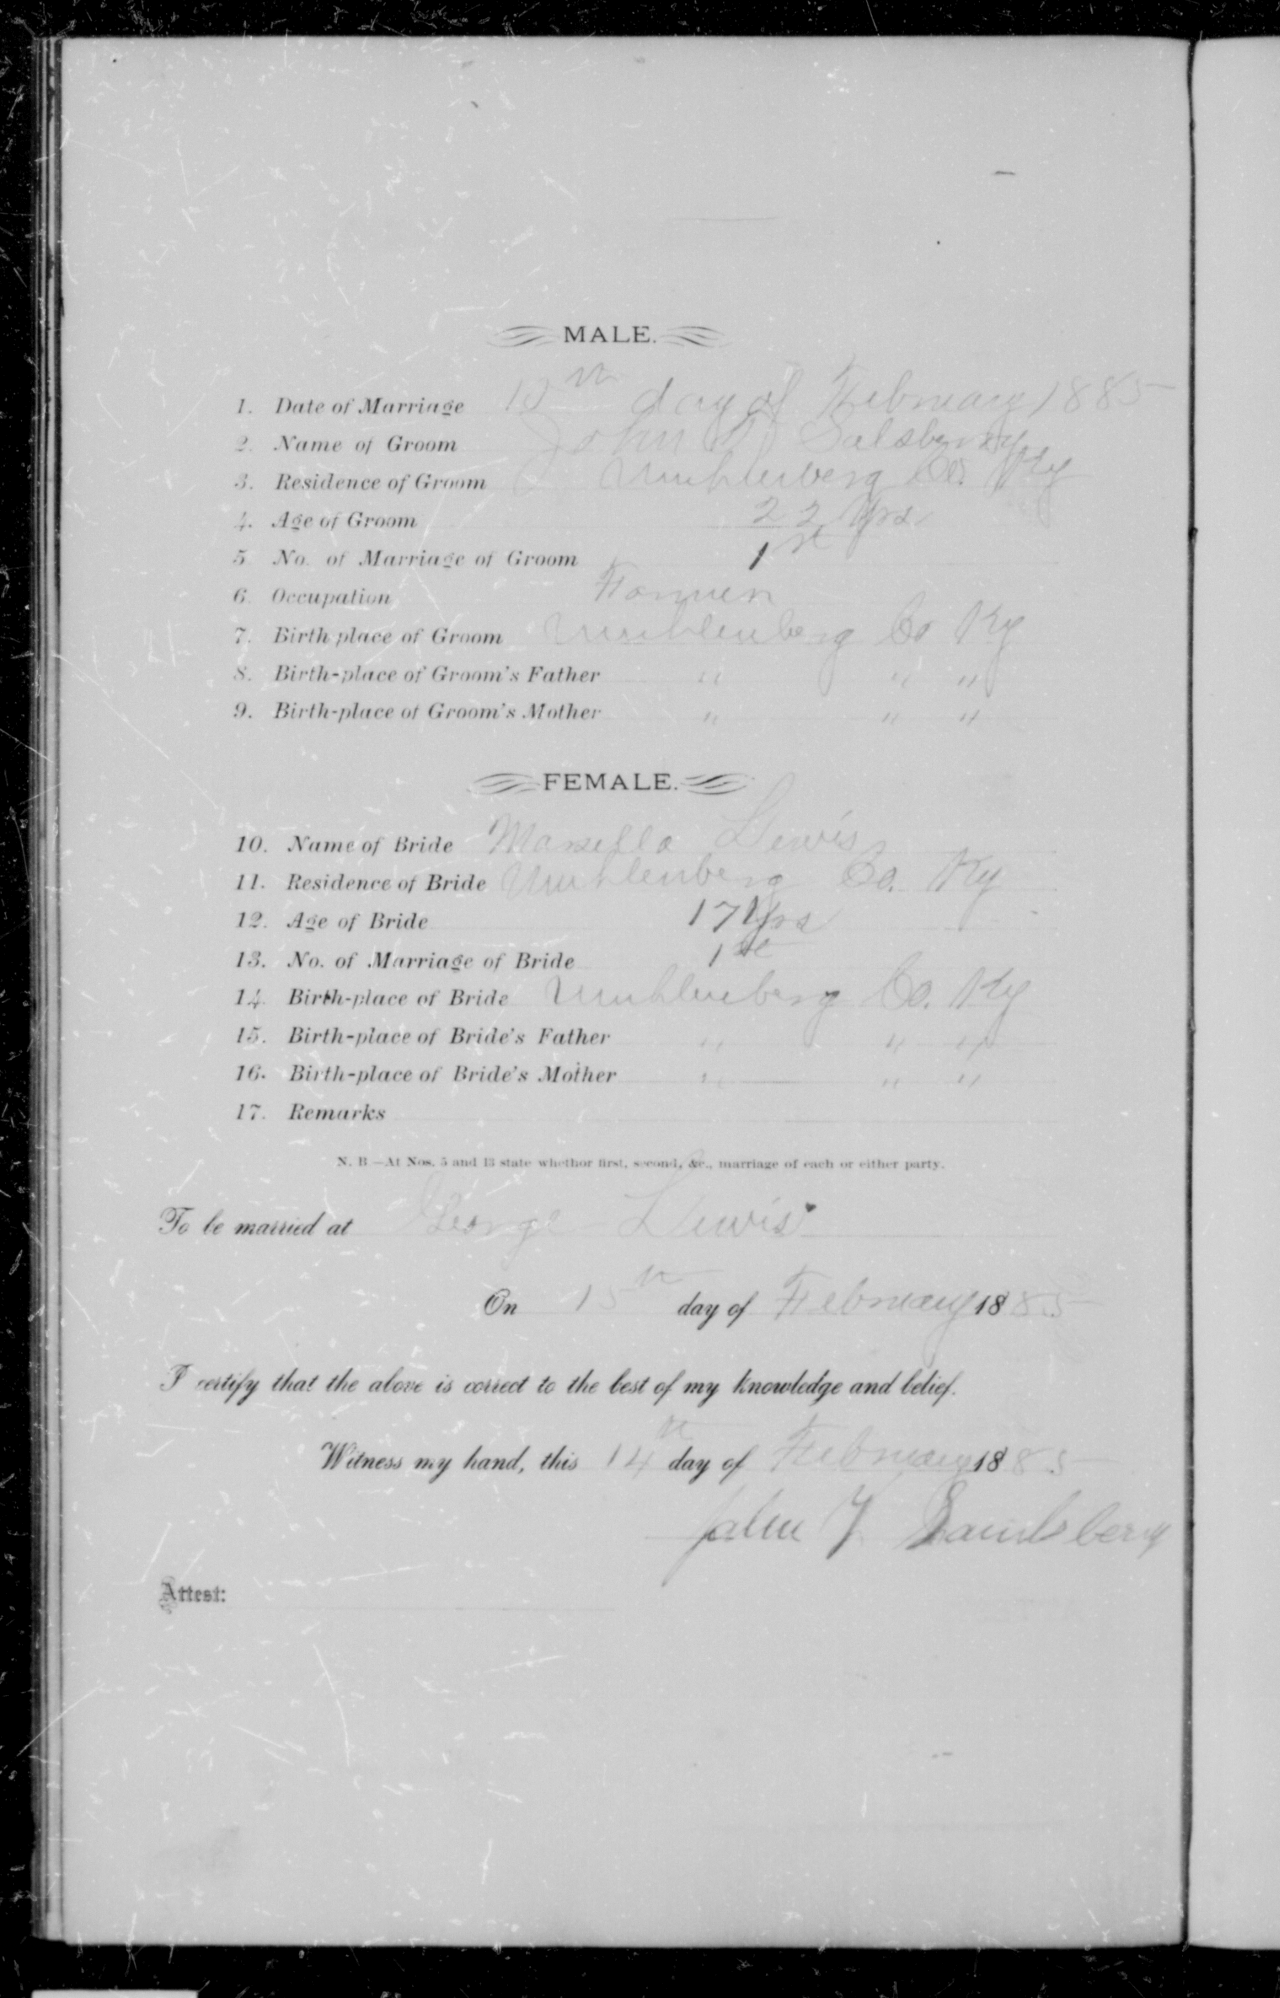 MALE.
1. Date of Marriage 15th day of February 1885
2. Name of Groom John Salsberry
3. Residence of Groom Muhlenberg Co. Ky
4. Age of Groom 22 Yrs
5 No. of Marriage of Groom 1st
6. Occupation Farmer
7. Birth place of Groom Muhlenberg Co Ky
8. Birth-place of Groom's Father " " "
9. Birth-place of Groom's Mother " " "
FEMALE.
10. Name of Bride Lewis
11. Residence of Bride Muhlenberg Co. Ky
12. Age of Bride 17 Yrs
13. No. of Marriage of Bride 1st
14. Birth-place of Bride Muhlenberg Co. Ky
15. Birth-place of Bride's Father " " "
16. Birth-place of Bride's Mother " " "
17. Remarks
N. B—At Nos. 5 and 13 state whethor first, second, &c., marriage of each or either party.
To be married at George Lewis
On 15th day of February 1885
I certify that the above is correct to the best of my knowledge and belief.
Witness my hand, this 14th day of February 1885
John
Attest: